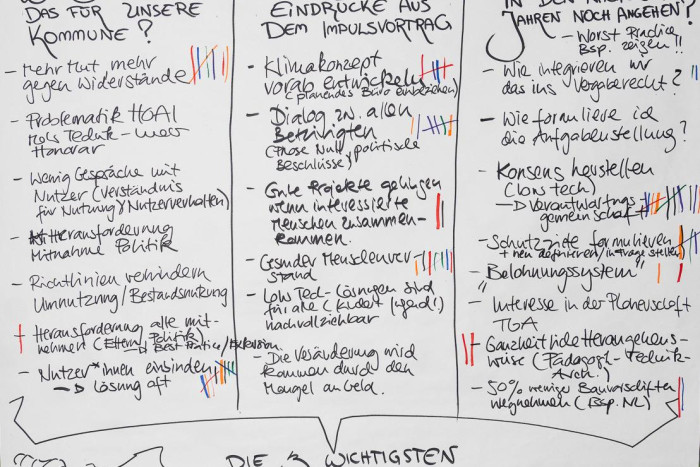 DAS FÜR UNSERE
KOMMUNE?
- Mehr Mut mehr
gegen Widerstände
- Problematik HOAI
Honorar
- Wenig Gespräche mit
Nutzer (Verständnis
für Nutzung/Nutzerverhalten)
- Herausforderung
Mitnahme Politik
- Richtlinien verhindern
Umnutzung/Bestandsnutzung
Herausforderung alle mit-
nehmen (Eltern, Politik)
→ Best Practice/Exkursion
- Nutzer*innen einbinden
→ Lösung oft
EINDRÜCKE AUS
DEM IMPULSVORTRAG
- Klimakonzept
vorab entwickeln
(planendes Büro einbeziehen)
- Dialog zw. allen
Beteiligten
(Phase Null, politische
Beschlüsse)
- Gute Projekte gelingen
wenn interessierte
Menschen zusammen-
kommen.
- Gesunder Menschenver-
stand
- Low Tech-Lösungen sind
für alle (Kinder/Jgend!)
nachvollziehbar
- Die Veränderung wird
kommen durch den
Mangel an Geld.
JAHREN NOCH ANGEHEN?
- Worst Practice
Bsp. zeigen!!
- Wie integrieren wir
das ins Vergaberecht?
- Wie formuliere ich
die Aufgabenstellung?
- Konsens herstellen
(low tech)
→ Verantwortungs-
gemeinschaft
- Schutzziele formulieren
+ neu definieren/infrage stellen
- "Belohnungssystem"
- Interesse in der Planerschaft
TGA
- Ganzheitliche Herangehens-
weise (Pädagog.-Technik-
Arch.)
- 50% weniger Bauvorschriften
wegnehmen (Bsp. NL)
DIE 3 WICHTIGSTEN